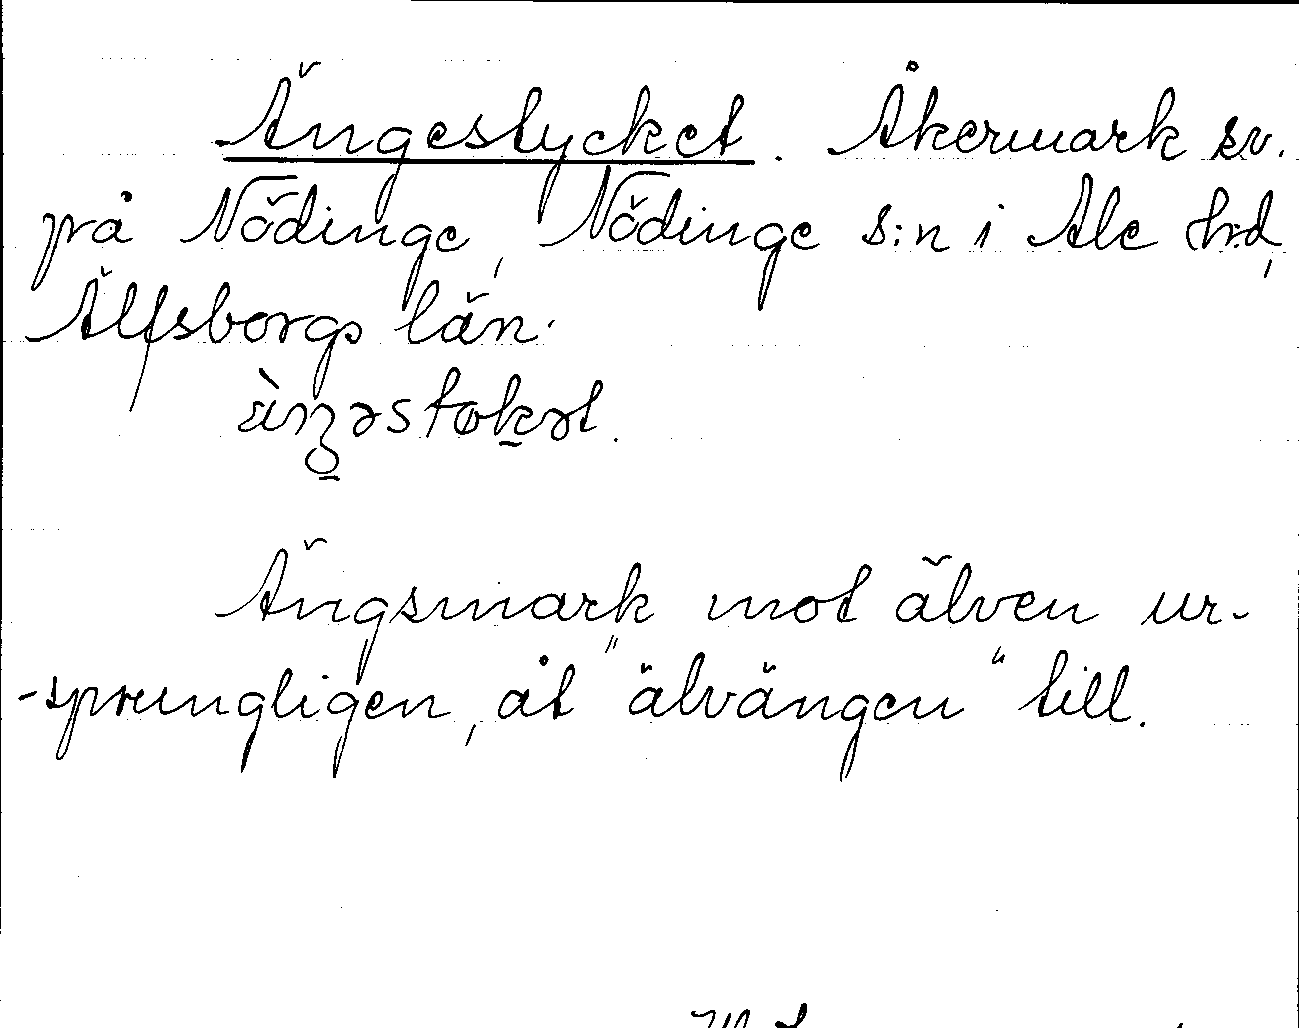 Ängestycket. Åkermark sv.
på Nödinge, Nödinge s:n i Ale hd,
Älfsborgs län.
Ängsmark mot älven ur-
-sprungligen, åt "älvängen" till.